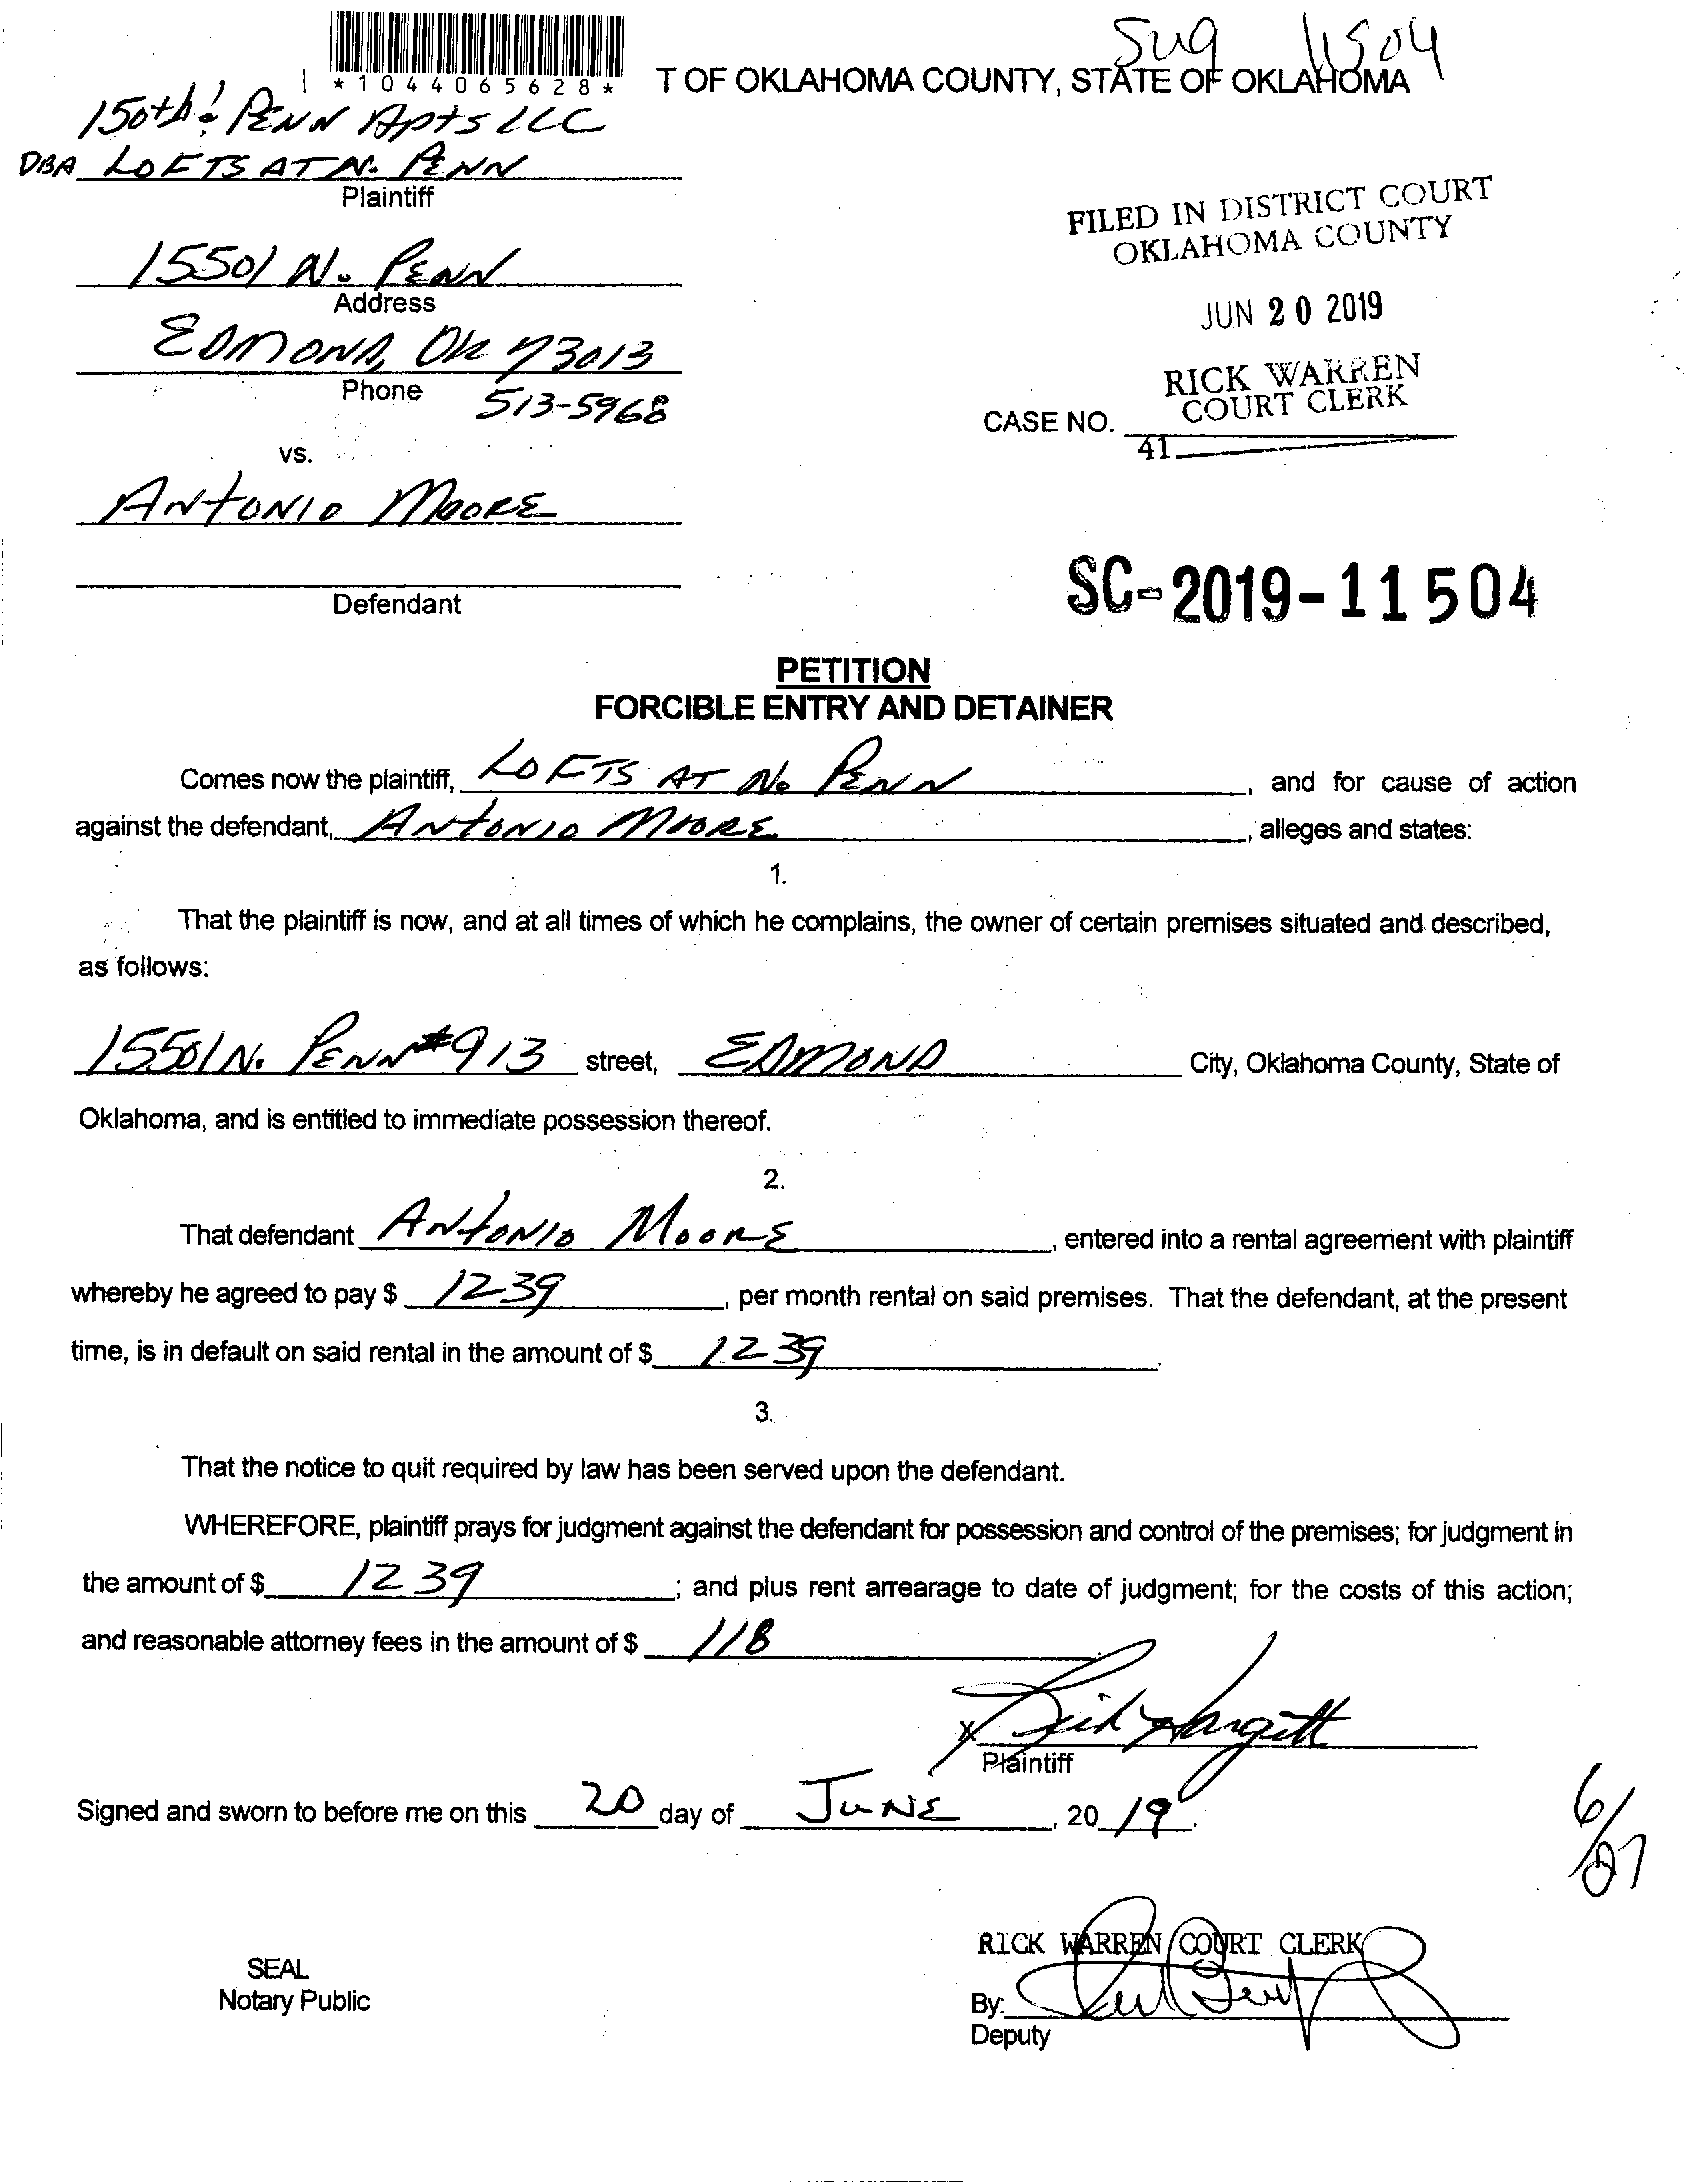 Sug 11504
*1044065628*
T OF OKLAHOMA COUNTY, STATE OF OKLAHOMA
150th & PENN Apts LLC
DBA LOFTS AT N. PENN
Plaintiff
FILED IN DISTRICT COURT
OKLAHOMA COUNTY
15501 N. PENN
Address
JUN 20 2019
EDMOND, OK 73013
Phone 513-5968
RICK WARREN
COURT CLERK
CASE NO.
41
vs.
ANTONIO MOORE
Defendant
SC-2019-11504
PETITION
FORCIBLE ENTRY AND DETAINER
Comes now the plaintiff, LOFTS AT No PENN, and for cause of action
against the defendant, ANTONIO MOORE, alleges and states:
1.
That the plaintiff is now, and at all times of which he complains, the owner of certain premises situated and described,
as follows:
15501 N. PENN #913 street, EDMOND City, Oklahoma County, State of
Oklahoma, and is entitled to immediate possession thereof.
2.
That defendant ANTONIO MOORE, entered into a rental agreement with plaintiff
whereby he agreed to pay $ 1239, per month rental on said premises. That the defendant, at the present
time, is in default on said rental in the amount of $ 1239.
3.
That the notice to quit required by law has been served upon the defendant.
WHEREFORE, plaintiff prays for judgment against the defendant for possession and control of the premises; for judgment in
the amount of $ 1239; and plus rent arrearage to date of judgment; for the costs of this action;
and reasonable attorney fees in the amount of $ 118
X Hargett
Plaintiff
Signed and sworn to before me on this 20 day of JUNE, 20 19.
6/27
RICK WARREN COURT CLERK
SEAL
Notary Public
By:
Deputy